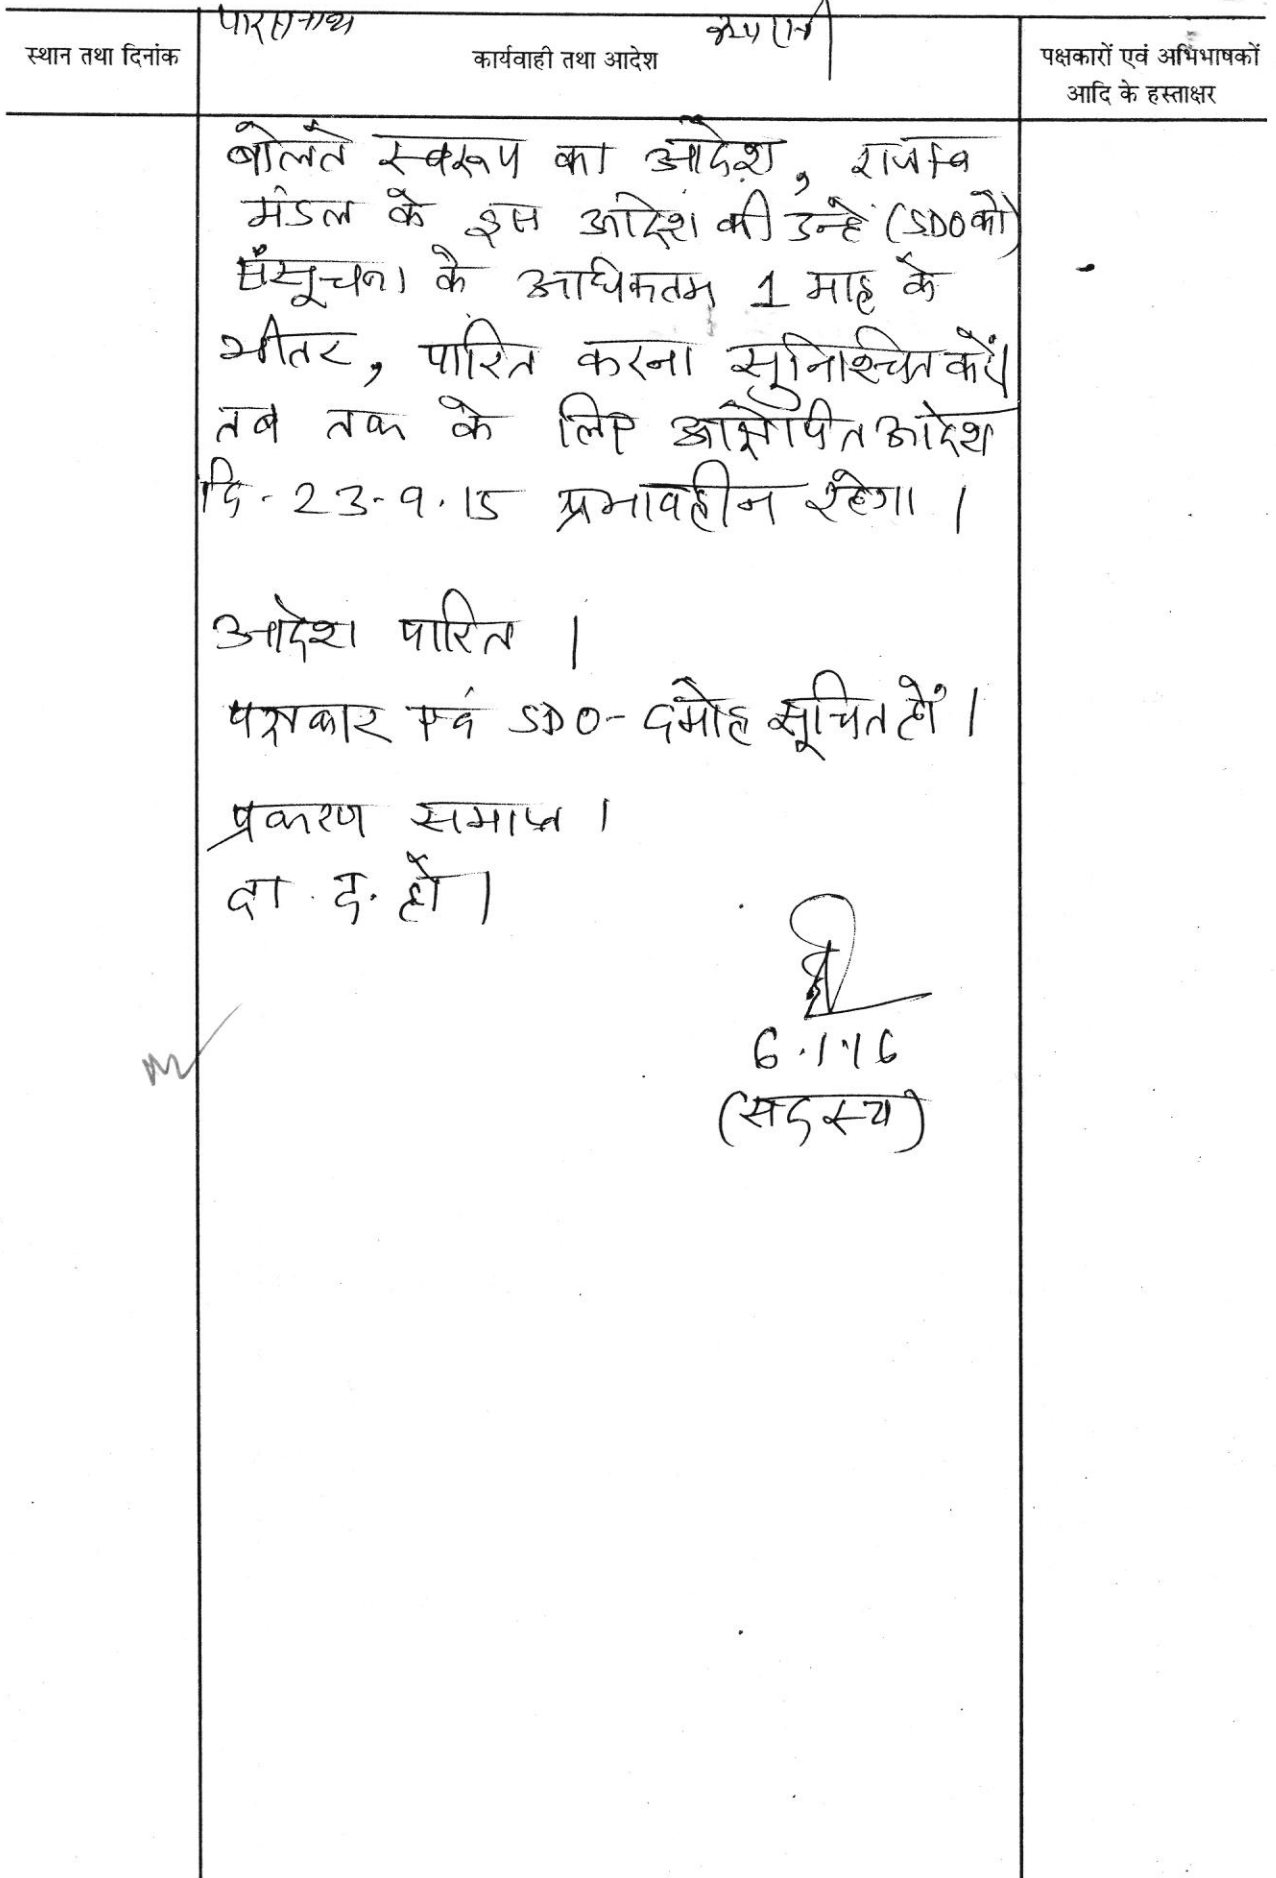 पारसनाथ
स्थान तथा दिनांक
कार्यवाही तथा आदेश
पक्षकारों एवं अभिभाषकों
आदि के हस्ताक्षर
बोलते स्वरूप का आदेश, राजस्व
मंडल के इस आदेश की उन्हें (SDO को)
संसूचना के अधिकतम 1 माह के
भीतर, पारित करना सुनिश्चित करें।
तब तक के लिए आक्षेपित आदेश
दि. 23-9-15 प्रभावहीन रहेगा।
आदेश पारित।
पक्षकार एवं SDO-दमोह सूचित हों।
प्रकरण समाप्त।
दा. द. हो।
6.1.16
(सदस्य)